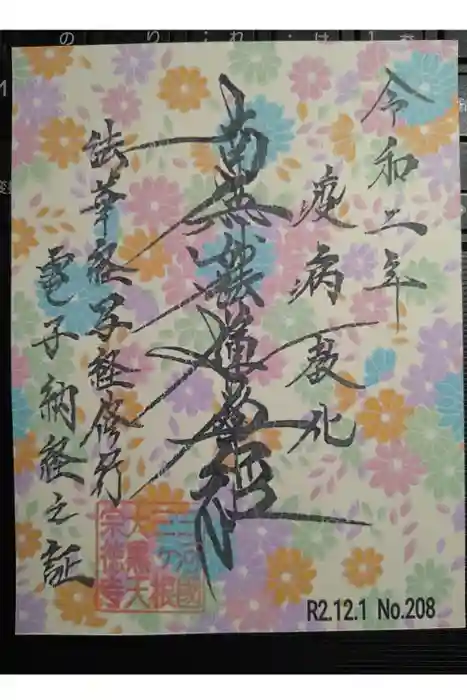 令和二年
疫病教化
南無妙法蓮華経
法華経写経修行
電子納経之証
三河國
三ケ根
大黒天
宗徳寺
R2.12.1 No.208